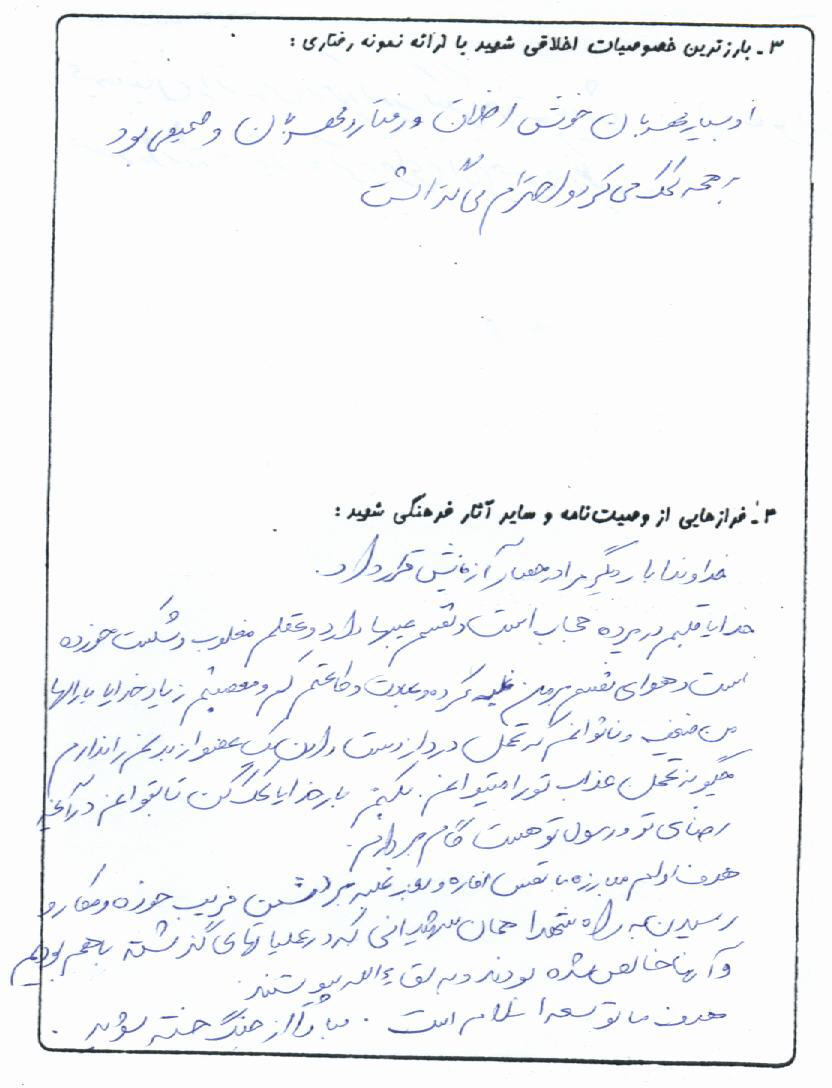 ۳ـ بارزترین خصوصیات اخلاقی شهید با ارائه نمونه رفتاری :
او بسیار مهربان خوش اخلاق و رفتار و مهربان و صمیمی بود
به همه کمک می کرد و احترام می گذاشت
۴ـ فرازهایی از وصیت‌نامه و سایر آثار فرهنگی شهید :
خداوندا بار دیگر مرا در معرض آزمایش قرار داد.
خدایا قلبم در پرده حجاب است و نفسم عیبها دارد و عقلم مغلوب و شکست خورده
است و هوای نفسم بر من غلبه کرده و عبادت و طاعتم کم و معصیتم زیاد خدایا بارالها
من ضعیف و ناتوانم که تحمل درد از دست دادن یک عضو از بدنم را ندارم
چگونه تحمل عذاب تو را میتوانم بکنم بار خدایا کمک کن تا بتوانم در آنچه
رضای تو و رسول تو هست گام بردارم.
هدف اولم مبارزه با نفس اماره و بعد غلبه بر دشمن فریب خورده و مکار و
رسیدن به راه شهدا همان شهیدانی که در عملیاتهای گذشته با هم بودیم
و آنها خالص شده بودند و به لقاءالله پیوستند.
هدف ما توسعه اسلام است . مبادا از جنگ خسته شوید .